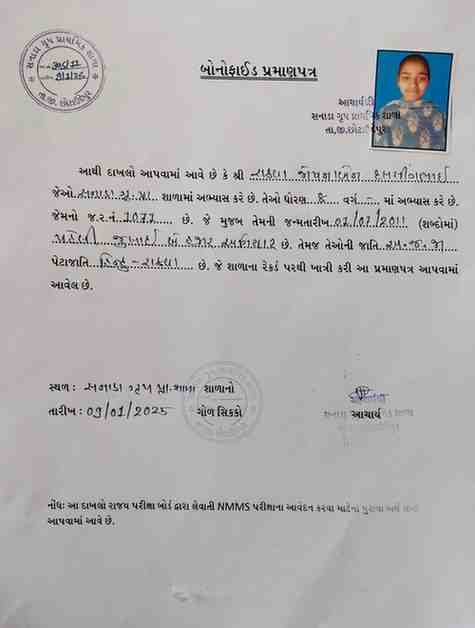 સનાડા ગૃપ પ્રાથમિક શાળા
તા.જી.છોટાઉદેપુર
બોનોફાઈડ પ્રમાણપત્ર
આચાર્યશ્રી
સનાડા ગૃપ પ્રાથમિક શાળા
તા.જી.છોટાઉદેપુર
આથી દાખલો આપવામાં આવે છે કે શ્રી રાઠવા
જેઓ સનાડા ગૃ.પ્રા. શાળામાં અભ્યાસ કરે છે. તેઓ ધોરણ ૮ વર્ગ - માં અભ્યાસ કરે છે.
જેમનો જ.ર.નં. 2077 છે. જે મુજબ તેમની જન્મતારીખ 01/07/2011 (શબ્દોમાં)
પહેલી જુલાઈ બે હજાર અગિયાર છે. તેમજ તેઓની જાતિ અ.જ.જા
પેટાજાતિ હિન્દુ - રાઠવા છે. જે શાળાના રેકર્ડ પરથી ખાત્રી કરી આ પ્રમાણપત્ર આપવામાં
આવેલ છે.
સ્થળ : સનાડા ગૃપ પ્રા.શાળા શાળાનો
તારીખ : 09/01/2025 ગોળ સિક્કો આચાર્ય
નોંધઃ આ દાખલો રાજવ પરીક્ષા બોર્ડ દ્વારા લેવાતી NMMS પરીક્ષાના આવેદન કરવા માટેના પુરાવા અર્થે
આપવામાં આવે છે.